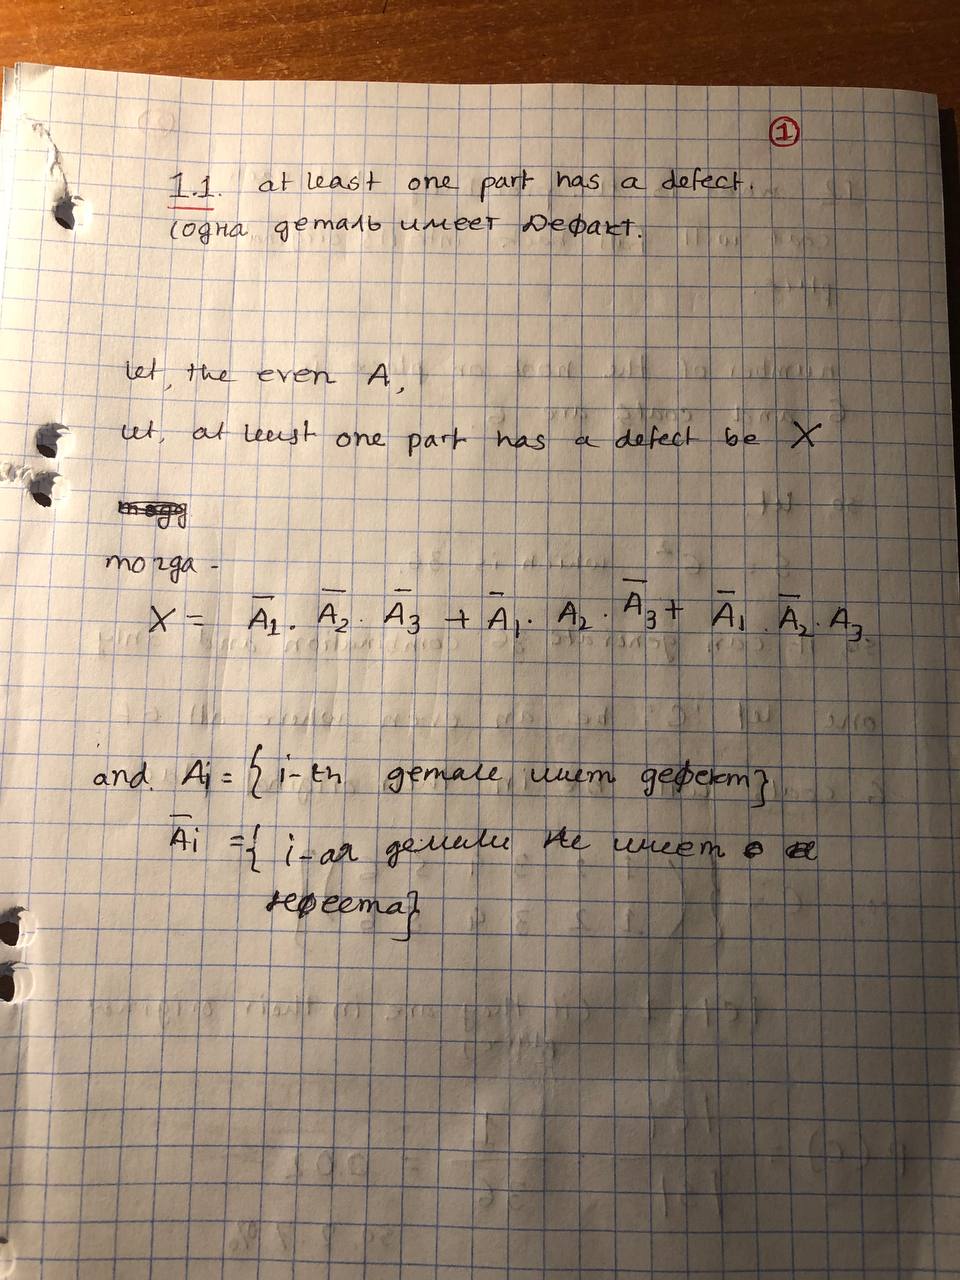 1
1.1. at least one part has a defect.
(одна деталь имеет Дефакт.
let, the even A,
let, at leust one part has a defect be X
тогда -
X = A̅₁. A̅₂. A̅₃ + A̅₁. A₂. A̅₃ + A̅₁. A̅₂. A₃
and. Ai = { i-th детале имет дефект}
A̅i = { i-ая детали не имеет